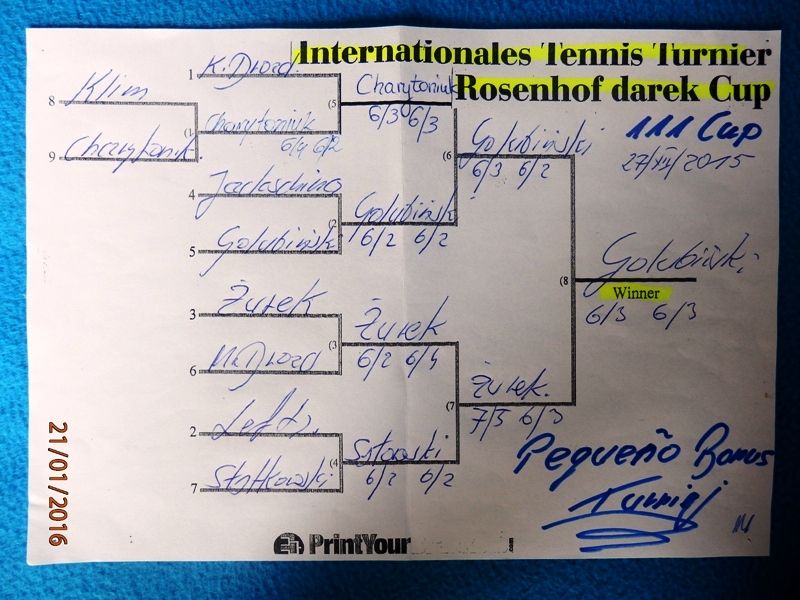 Internationales Tennis Turnier
Rosenhof darek Cup
111 Cup
27/XII/2015
1 K. Drozd
8 Klim
(1
Charytoniuk
6/4 6/2
9
(5
Charytoniuk
6/3 6/3
4
5 Golubiński
(2
Golubiński
6/2 6/2
(6
Golubiński
6/3 6/2
3 Żurek
6 M. Drozd
(3
Żurek
6/2 6/4
2
7
(4
6/2 6/2
(7
Żurek.
7/5 6/3
(8
Golubiński
Winner
6/3 6/3
Pequeño Bonus
Turniej
PrintYour
21/01/2016